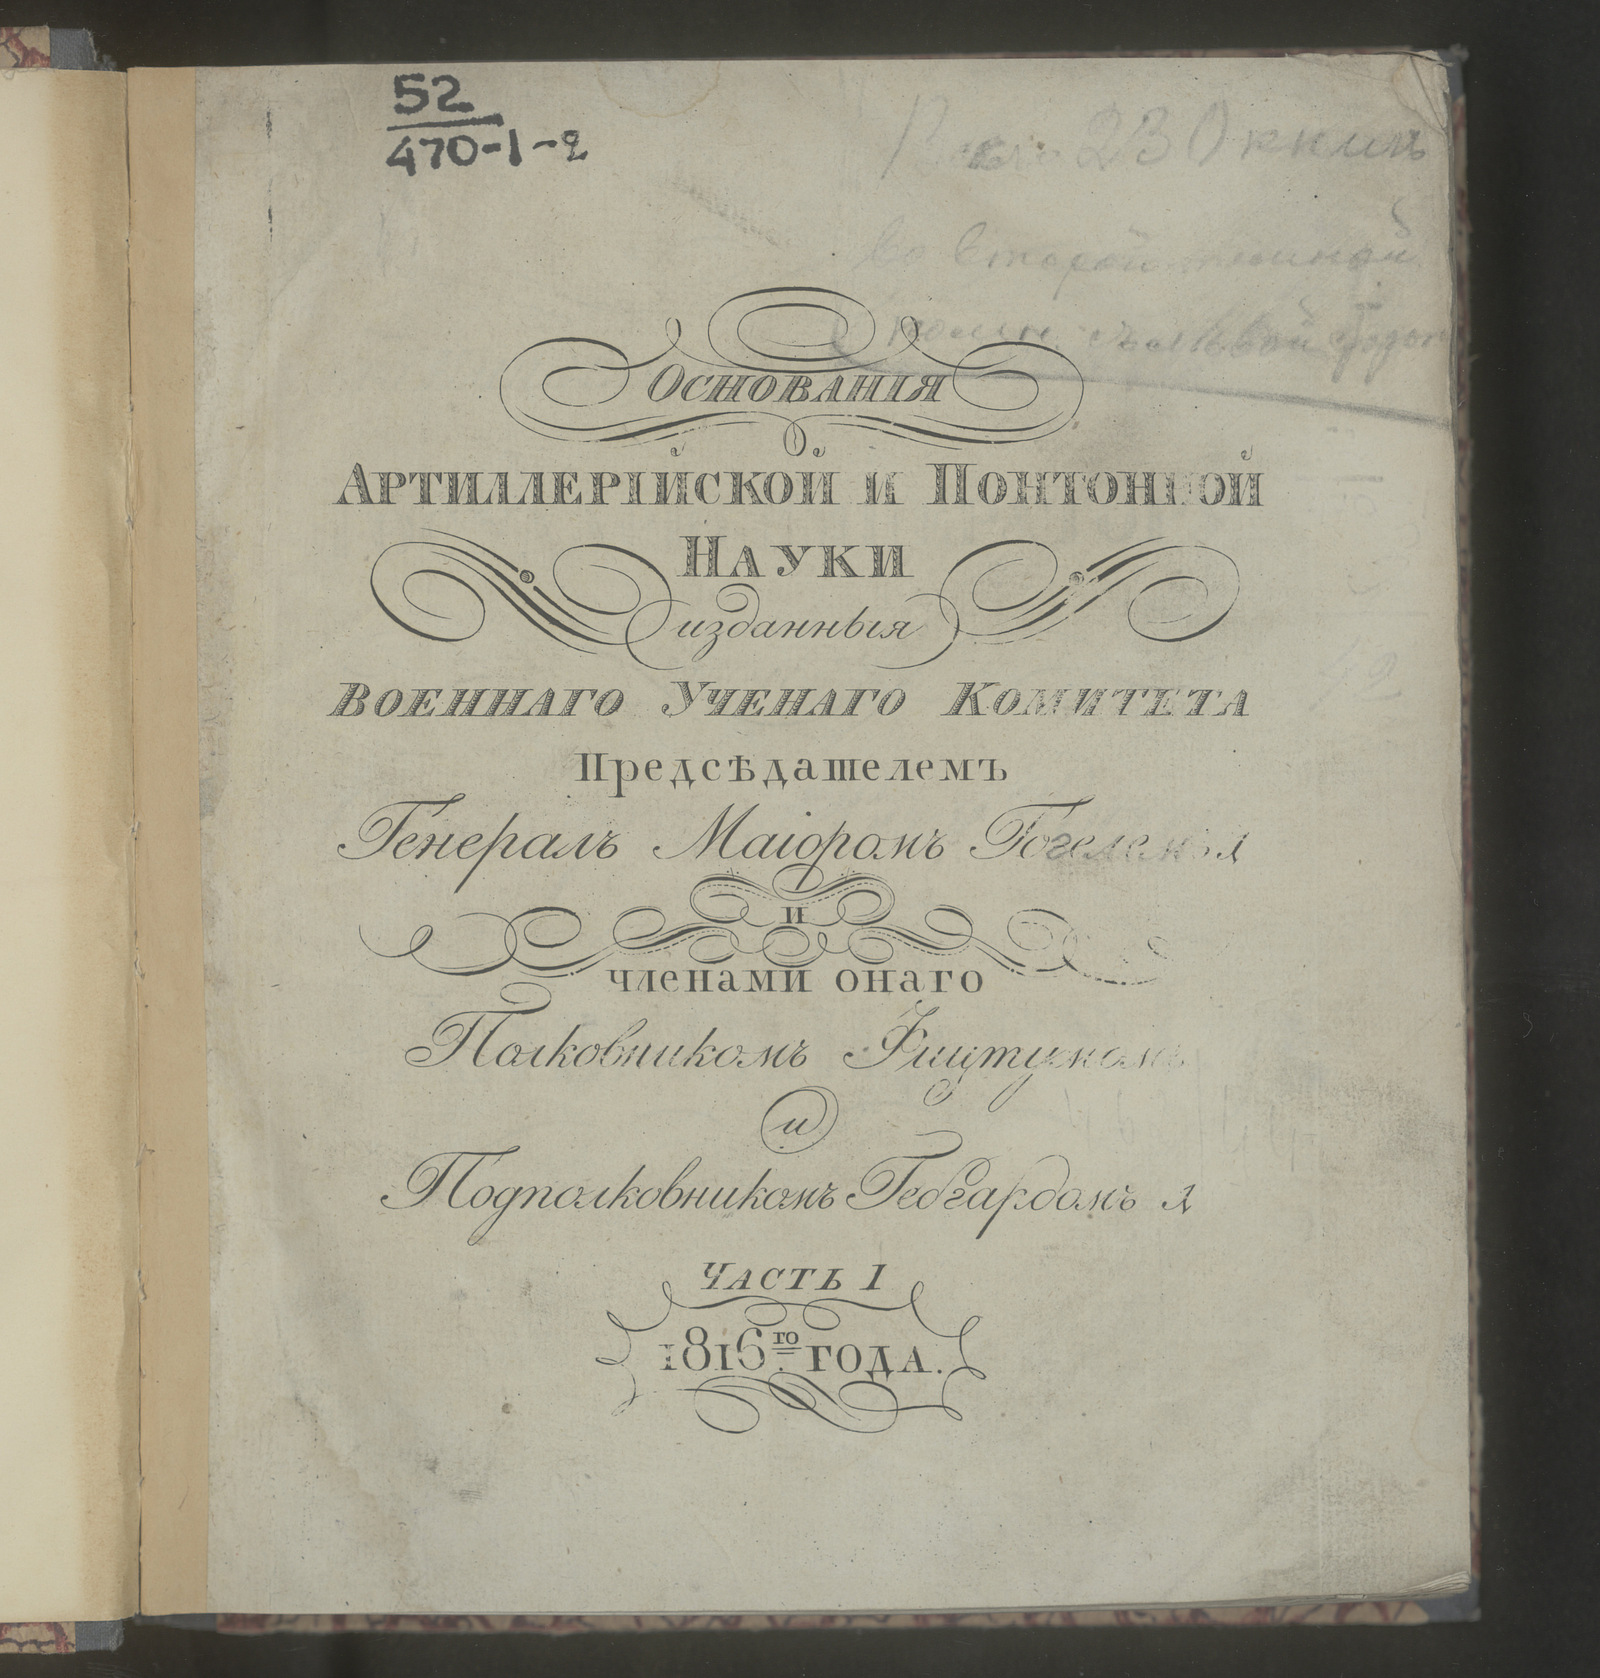 52
470-1-2
23 О
во второй
Основанія
Артиллерійской и Понтонной
Науки
изданныя
Военнаго Ученаго Комитета
Предсѣдателемъ
Генералъ Маіоромъ Гогелемъ 1
и
членами онаго
Полковникомъ Фицтумомъ
и
Подполковникомъ Гебгардомъ 1
Часть I
1816го года.